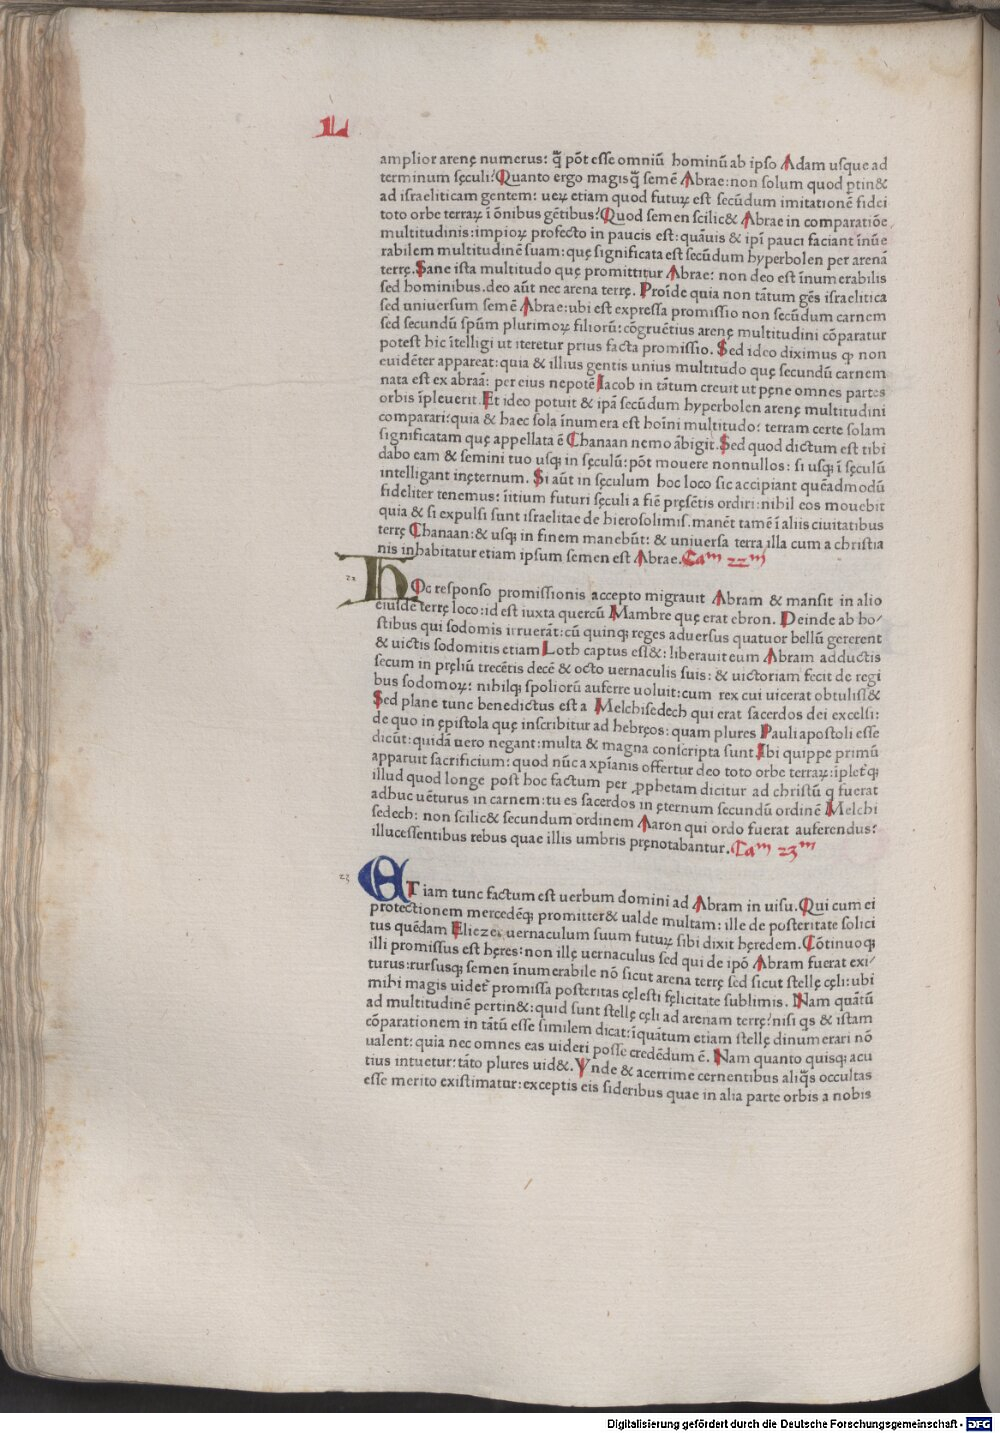 L
amplior arenę numerus: q̃ põt esse omniũ hominũ ab ipso Adam usque ad
terminum sęculi? Quanto ergo magis q̃ semẽ Abrae: non solum quod ꝑtin&
ad israeliticam gentem: ueꝝ etiam quod futuꝝ est secũdum imitationẽ fidei
toto orbe terraꝝ ĩ õnibus gẽtibus? Quod semen scilic& Abrae in comparatiõe
multitudinis: impioꝝ profecto in paucis est: quãuis & ipĩ pauci faciant ĩnũe
rabilem multitudinẽ suam: quę significata est secũdum hyperbolen per arenã
terrę. Sane ista multitudo quę promittitur Abrae: non deo est ĩnumerabilis
sed hominibus. deo aũt nec arena terrę. Proĩde quia non tãtum gẽs israelitica
sed uniuersum semẽ Abrae: ubi est expressa promissio non secũdum carnem
sed secundũ spũm plurimoꝝ filiorũ: cõgruẽtius arenę multitudini cõparatur
potest hic ĩtelligi ut iteretur prius facta promissio. Sed ideo diximus ꝙ non
euidẽter appareat: quia & illius gentis unius multitudo quę secundũ carnem
nata est ex abraã: per eius nepotẽ Iacob in tãtum creuit ut pęne omnes partes
orbis ĩpleuerit. Et ideo potuit & ipã secũdum hyperbolen arenę multitudini
comparari: quia & haec sola ĩnumera est hoĩni multitudo: terram certe solam
significatam quę appellata ẽ Chanaan nemo ãbigit. Sed quod dictum est tibi
dabo eam & semini tuo usq; in sęculũ: põt mouere nonnullos: si usq; ĩ sęculũ
intelligant inęternum. Si aũt in sęculum hoc loco sic accipiant quẽadmodũ
fideliter tenemus: ĩitium futuri sęculi a fiẽ pręsẽtis ordiri: nihil eos mouebit
quia & si expulsi sunt israelitae de hierosolimis. manẽt tamẽ ĩ aliis ciuitatibus
terrę Chanaan: & usq; in finem manebũt: & uniuersa terra illa cum a christia
nis inhabitatur etiam ipsum semen est Abrae. Caᵐ 22ᵐ
22
HOc responso promissionis accepto migrauit Abram & mansit in alio
eiusdẽ terrę loco: id est iuxta quercũ Mambre quę erat ebron. Deinde ab ho/
stibus qui sodomis irruerãt: cũ quinq; reges aduersus quatuor bellũ gererent
& uictis sodomitis etiam Loth captus ess&: liberauit eum Abram adductis
secum in pręliũ trecẽtis decẽ & octo uernaculis suis: & uictoriam fecit de regi
bus sodomoꝝ: nihilq; spoliorũ auferre uoluit: cum rex cui uicerat obtuliss&
Sed plane tunc benedictus est a Melchisedech qui erat sacerdos dei excelsi:
de quo in ępistola quę inscribitur ad hebręos: quam plures Pauli apostoli esse
dicũt: quidã uero negant: multa & magna conscripta sunt. Ibi quippe primũ
apparuit sacrificium: quod nũc a xp̃ianis offertur deo toto orbe terraꝝ: ĩplet̃q;
illud quod longe post hoc factum per ꝓphetam dicitur ad christũ q̃ fuerat
adhuc uẽturus in carnem: tu es sacerdos in ęternum secundũ ordinẽ Melchi
sedech: non scilic& secundum ordinem Aaron qui ordo fuerat auferendus:
illucessentibus rebus quae illis umbris pręnotabantur. Caᵐ 23ᵐ
23
ETiam tunc factum est uerbum domini ad Abram in uisu. Qui cum ei
protectionem mercedẽq; promitter& ualde multam: ille de posteritate solici
tus quẽdam Eliezer uernaculum suum futuꝝ sibi dixit hęredem. Cõtinuoq;
illi promissus est hęres: non ille uernaculus sed qui de ipõ Abram fuerat exi/
turus: rursusq; semen ĩnumerabile nõ sicut arena terrę sed sicut stellę cęli: ubi
mihi magis uidet̃ promissa posteritas cęlesti fęlicitate sublimis. Nam quãtũ
ad multitudinẽ pertin&: quid sunt stellę cęli ad arenam terrę? nisi q̃s & istam
cõparationem in tãtũ esse similem dicat: ĩquãtum etiam stellę dinumerari nõ
ualent: quia nec omnes eas uideri posse credẽdum ẽ. Nam quanto quisq; acu
tius intuetur: tãto plures uid&. Vnde & acerrime cernentibus aliq̃s occultas
esse merito existimatur: exceptis eis sideribus quae in alia parte orbis a nobis
Digitalisierung gefördert durch die Deutsche Forschungsgemeinschaft - DFG